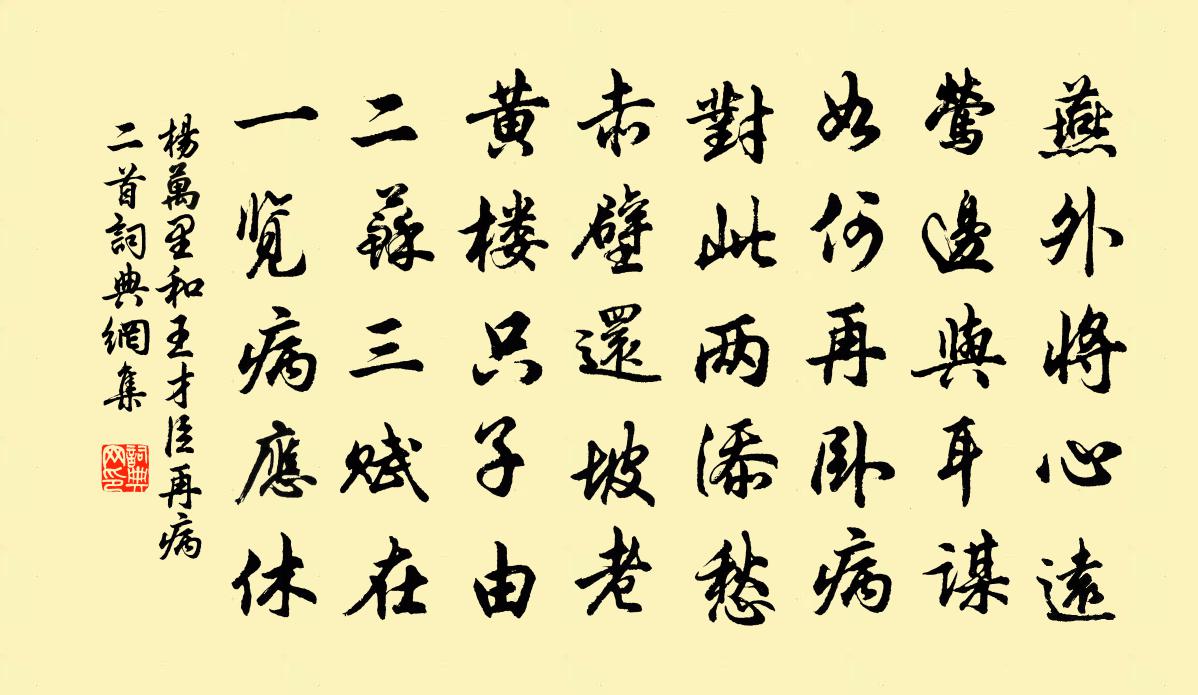 燕外将心遠
鶯邊與耳謀
如何再卧病
對此两添愁
赤壁還坡老
黄楼只子由
二蘇三赋在
一览病應休
楊萬里和王才臣再病
二首詞典網集
詞典
网印